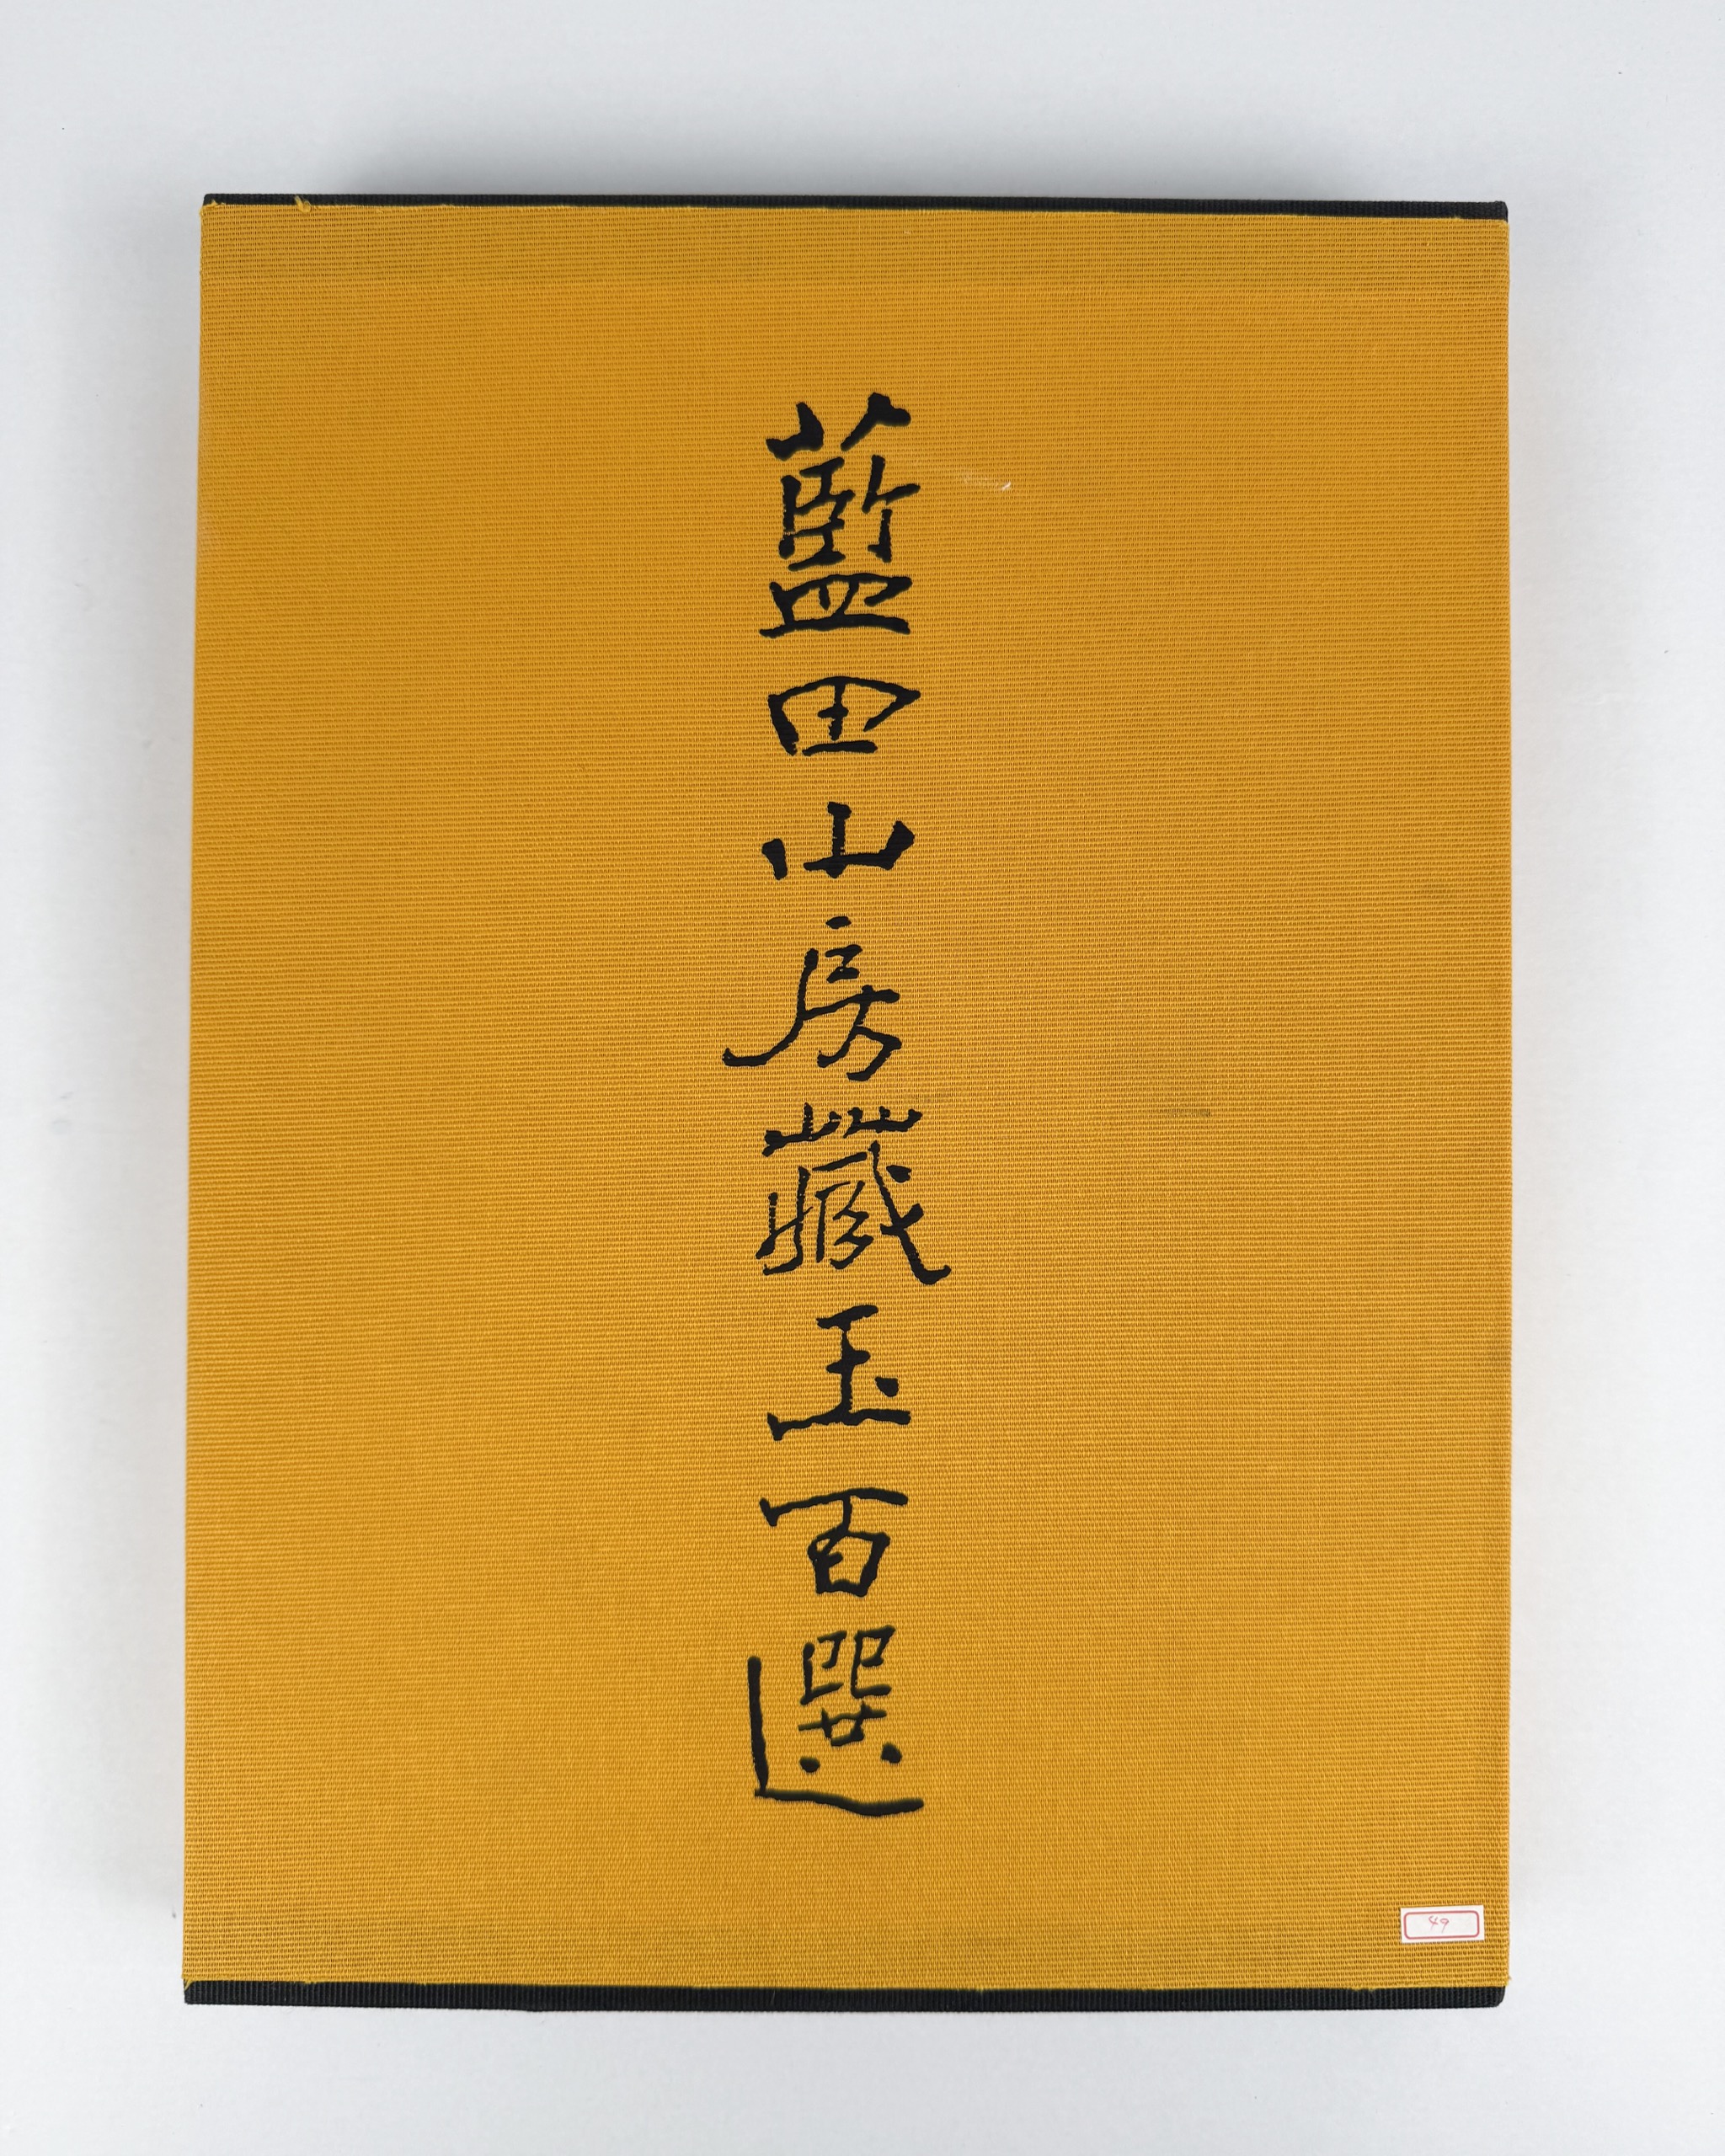 藍田山房藏玉百選
49